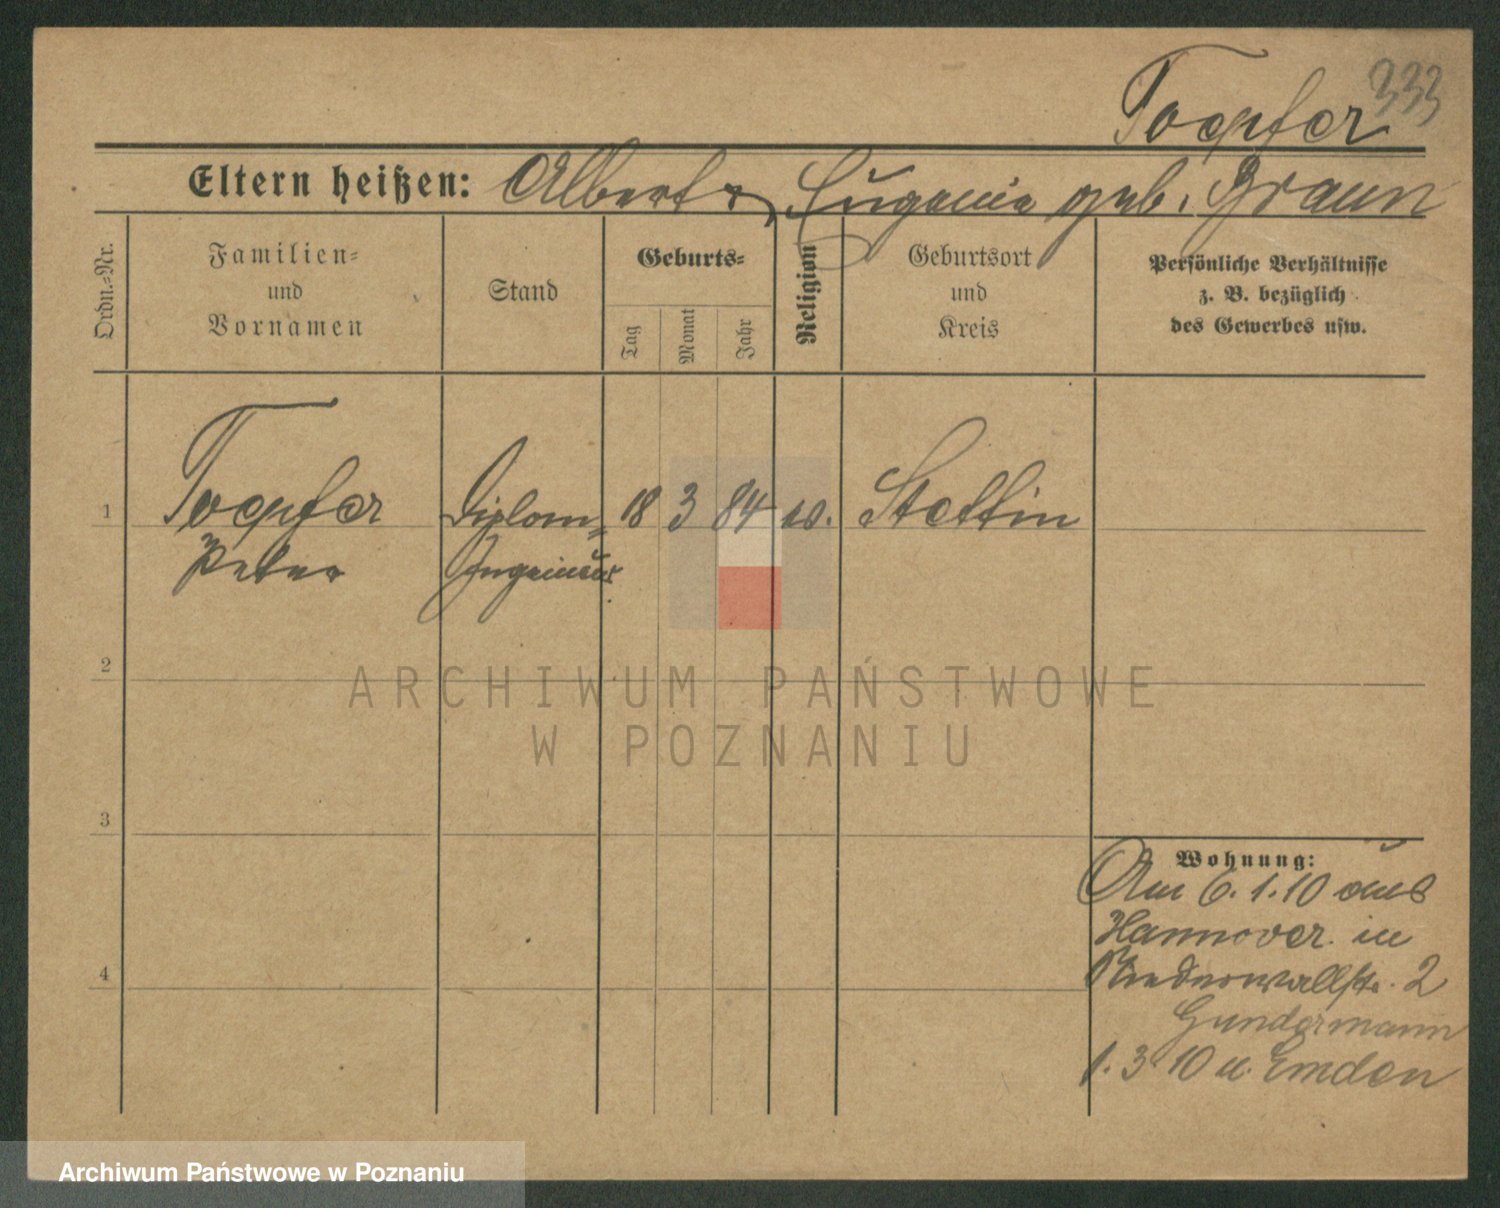 333
Toepfer
Eltern heißen: Albert u. Eugenie geb. Braun
Ordn.=Nr.
Familien=
und
Vornamen
Stand
Geburts=
Tag
Monat
Jahr
Religion
Geburtsort
und
Kreis
Persönliche Verhältnisse
z. B. bezüglich
des Gewerbes usw.
1 Toepfer Diplom= 18 3 84 ev. Stettin
Peter Ingenieur
2
3
4
Wohnung:
Am 6.1.10 aus
Hannover in
Niederwallstr. 2
Gundermann
1.3.10 n. Emden
ARCHIWUM PAŃSTWOWE
W POZNANIU
Archiwum Państwowe w Poznaniu